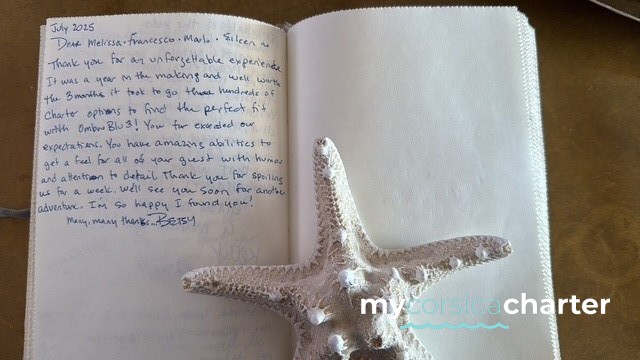 July 2025
Dear Melissa · Francesco · Marlo · Eileen
Thank you for an unforgettable experience
It was a year in the making and well worth
the 3 months it took to go through hundreds of
charter options to find the perfect fit
with OmbraBlu3! You far exceeded our
expectations. You have amazing abilities to
get a feel for all of your guest with humor
and attention to detail. Thank you for spoiling
us for a week. We'll see you soon for another
adventure. I'm so happy I found you!
Many, many thanks... BETSY
mycorsicacharter